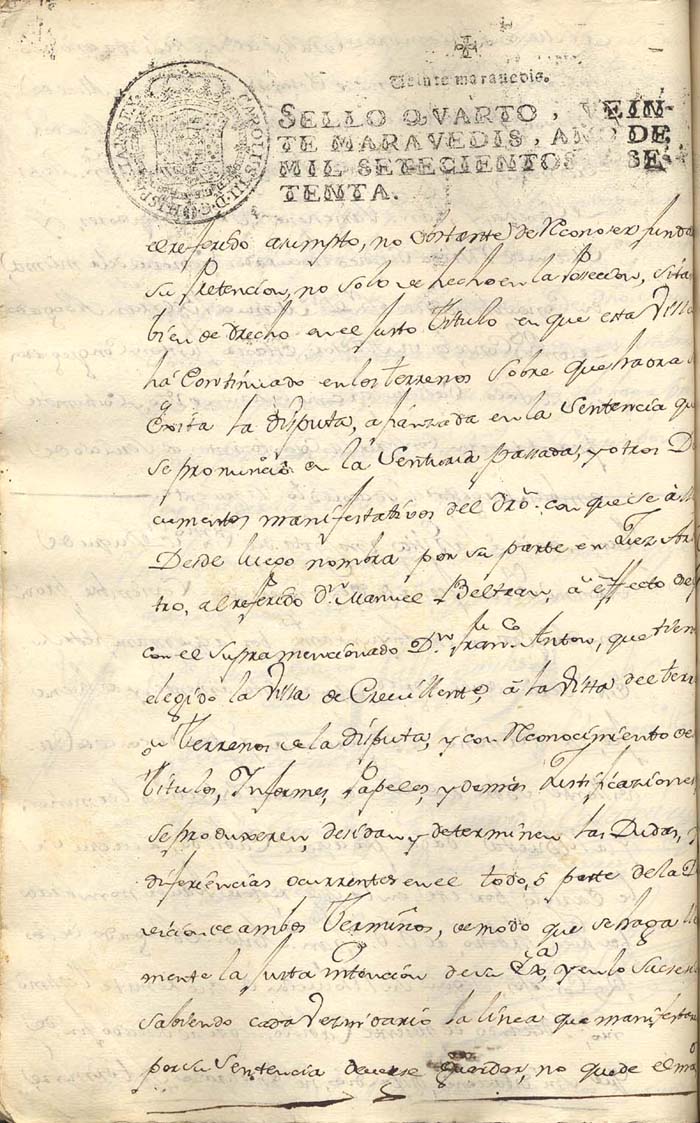 CAROLUS III D G HISP
Veinte maravedis.
SELLO QVARTO, VEIN-
TE MARAVEDIS, AÑO DE
MIL SETECIENTOS SE-
TENTA.
el referido asumpto, no obstante de Reconoser funda
su Pretencion, no solo de hecho en la Posecion, si ta
bien de Drecho en el Justo Titulo en que esta Villa
há Continuado en los terrenos sobre que haora
Exita la disputa, afianzada en la Sentencia qu
se pronunció en la Senturia passada, y otros D
cumentos manifestativos del Dro. con que se
Desde luego nombra por su parte en Juez Ar
tro, al referido Dn. Manuel Beltran, a effecto de
con el supra mencionado Dn. Franco. Anton, que tiene
elegido la Villa de Crevillente, â la Vista de
Terrenos de la disputa, y con Reconocimiento de
Titulos, Informes, Papeles, y demás Justificaziones
se produxeren, desidan y determinen las Dudas,
diferiencias ocurrentes en el todo, ó parte de la D
vicion de ambos Terminos, de modo que se haga
mente la Justa intencion de su Exa., y en lo Sucesi
sabiendo cada Vezindario la linea que manifiesta
por su Sentencia deverse guardar, no quede el m